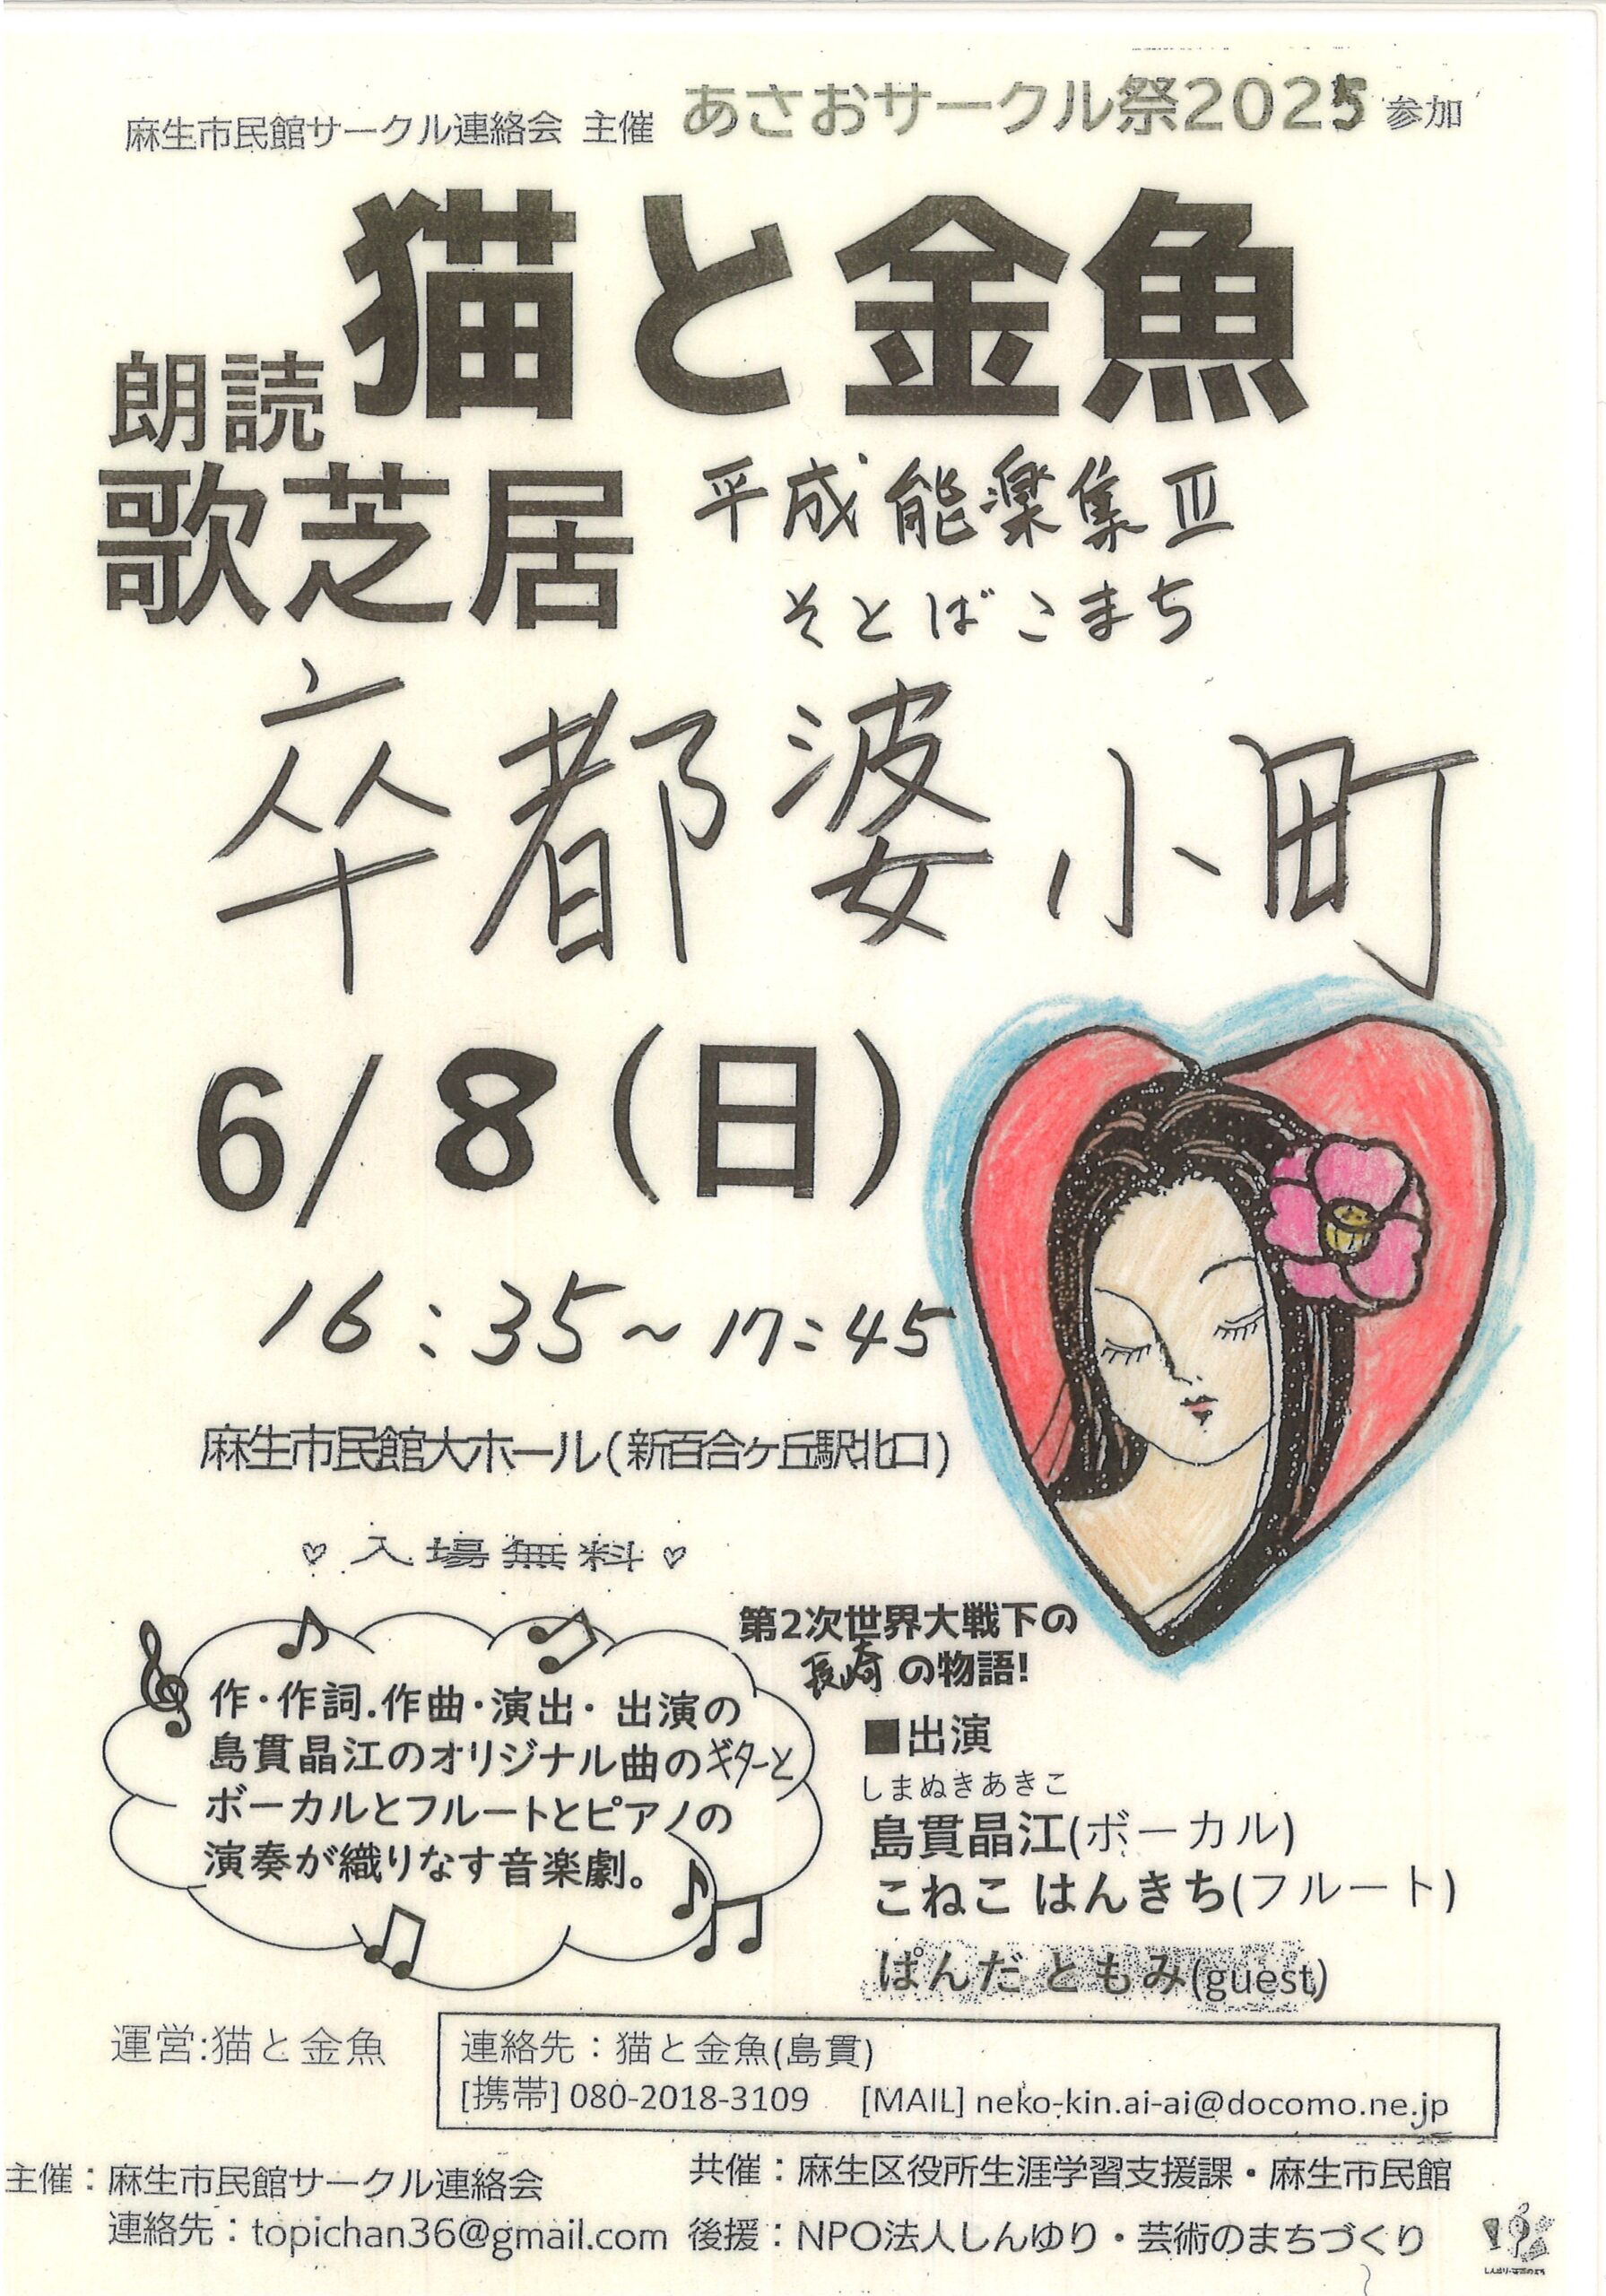 麻生市民館サークル連絡会 主催 あさおサークル祭2025 参加
猫と金魚
朗読
歌芝居
平成能楽集Ⅲ
そとばこまち
卒都婆小町
6/8(日)
16:35~17:45
麻生市民館大ホール(新百合ヶ丘駅北口)
♡入場無料♡
第2次世界大戦下の
長崎の物語!
作・作詞.作曲・演出・出演の
島貫晶江のオリジナル曲のギターと
ボーカルとフルートとピアノの
演奏が織りなす音楽劇。
■出演
しまぬきあきこ
島貫晶江(ボーカル)
こねこ はんきち(フルート)
ぱんだ ともみ(guest)
運営:猫と金魚
連絡先:猫と金魚(島貫)
[携帯] 080-2018-3109 [MAIL] neko-kin.ai-ai@docomo.ne.jp
主催:麻生市民館サークル連絡会
連絡先:topichan36@gmail.com
共催:麻生区役所生涯学習支援課・麻生市民館
後援:NPO法人しんゆり・芸術のまちづくり